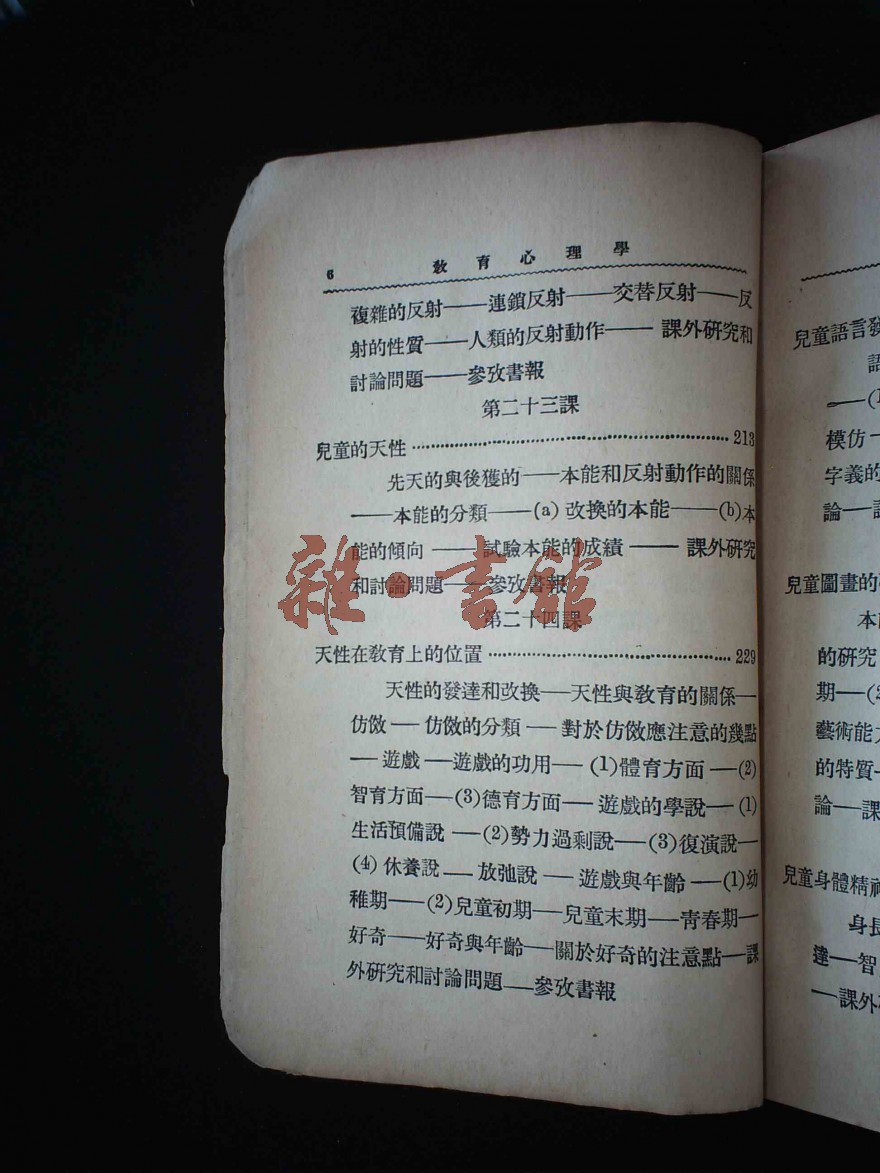 6 教育心理學
複雜的反射——連鎖反射——交替反射——反
射的性質——人類的反射動作——課外研究和
討論問題——參攷書報
第二十三課
兒童的天性……213
先天的與後獲的——本能和反射動作的關係
——本能的分類——(a)改換的本能——(b)本
能的傾向——試驗本能的成績——課外研究
和討論問題——參攷書報
第二十四課
天性在教育上的位置……229
天性的發達和改換——天性與教育的關係—
仿傚—仿傚的分類—對於仿傚應注意的幾點
—遊戲—遊戲的功用—(1)體育方面—(2)
智育方面—(3)德育方面—遊戲的學說—(1)
生活預備說—(2)勢力過剩說—(3)復演說—
(4)休養說—放弛說—遊戲與年齡—(1)幼
稚期—(2)兒童初期—兒童末期—靑春期—
好奇—好奇與年齡—關於好奇的注意點—課
外研究和討論問題—參攷書報
雜·書館
兒童語言發
語
—(1
模仿—
字義的
論—
兒童圖畫的
本
的研究
期—(2
藝術能
的特質—
論—課
兒童身體精神
身長
達—智
—課外